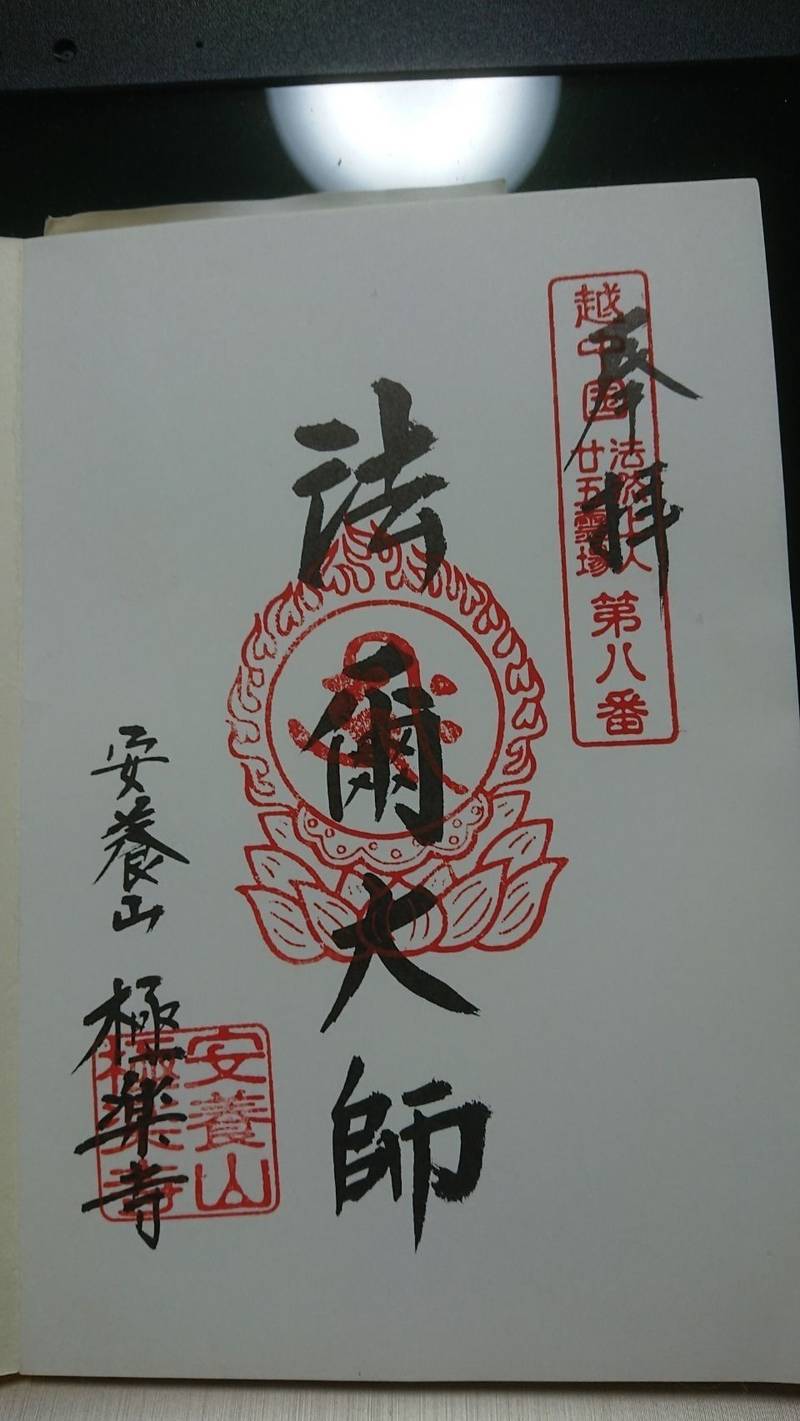 奉拝
越中国
法然上人
廿五霊場
第八番
法爾大師
安養山 極楽寺
安養山
極楽寺